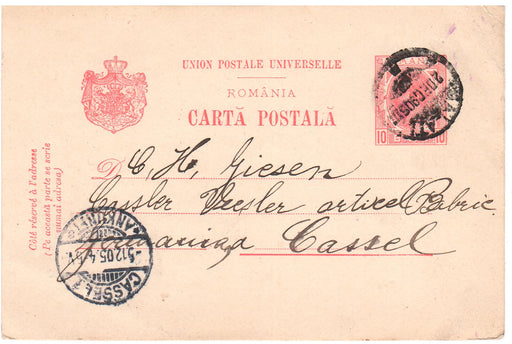 UNION POSTALE UNIVERSELLE
ROMÂNIA
CARTĂ POSTALĂ
10 10
D C. H. Giesen
Cassler artikel Fabric
Germania Cassel
Côté réservé à l'adresse
(Pe această parte se scrie
numai adresa)
CASSEL
5.12.05.4-5N.
ANKUNFT